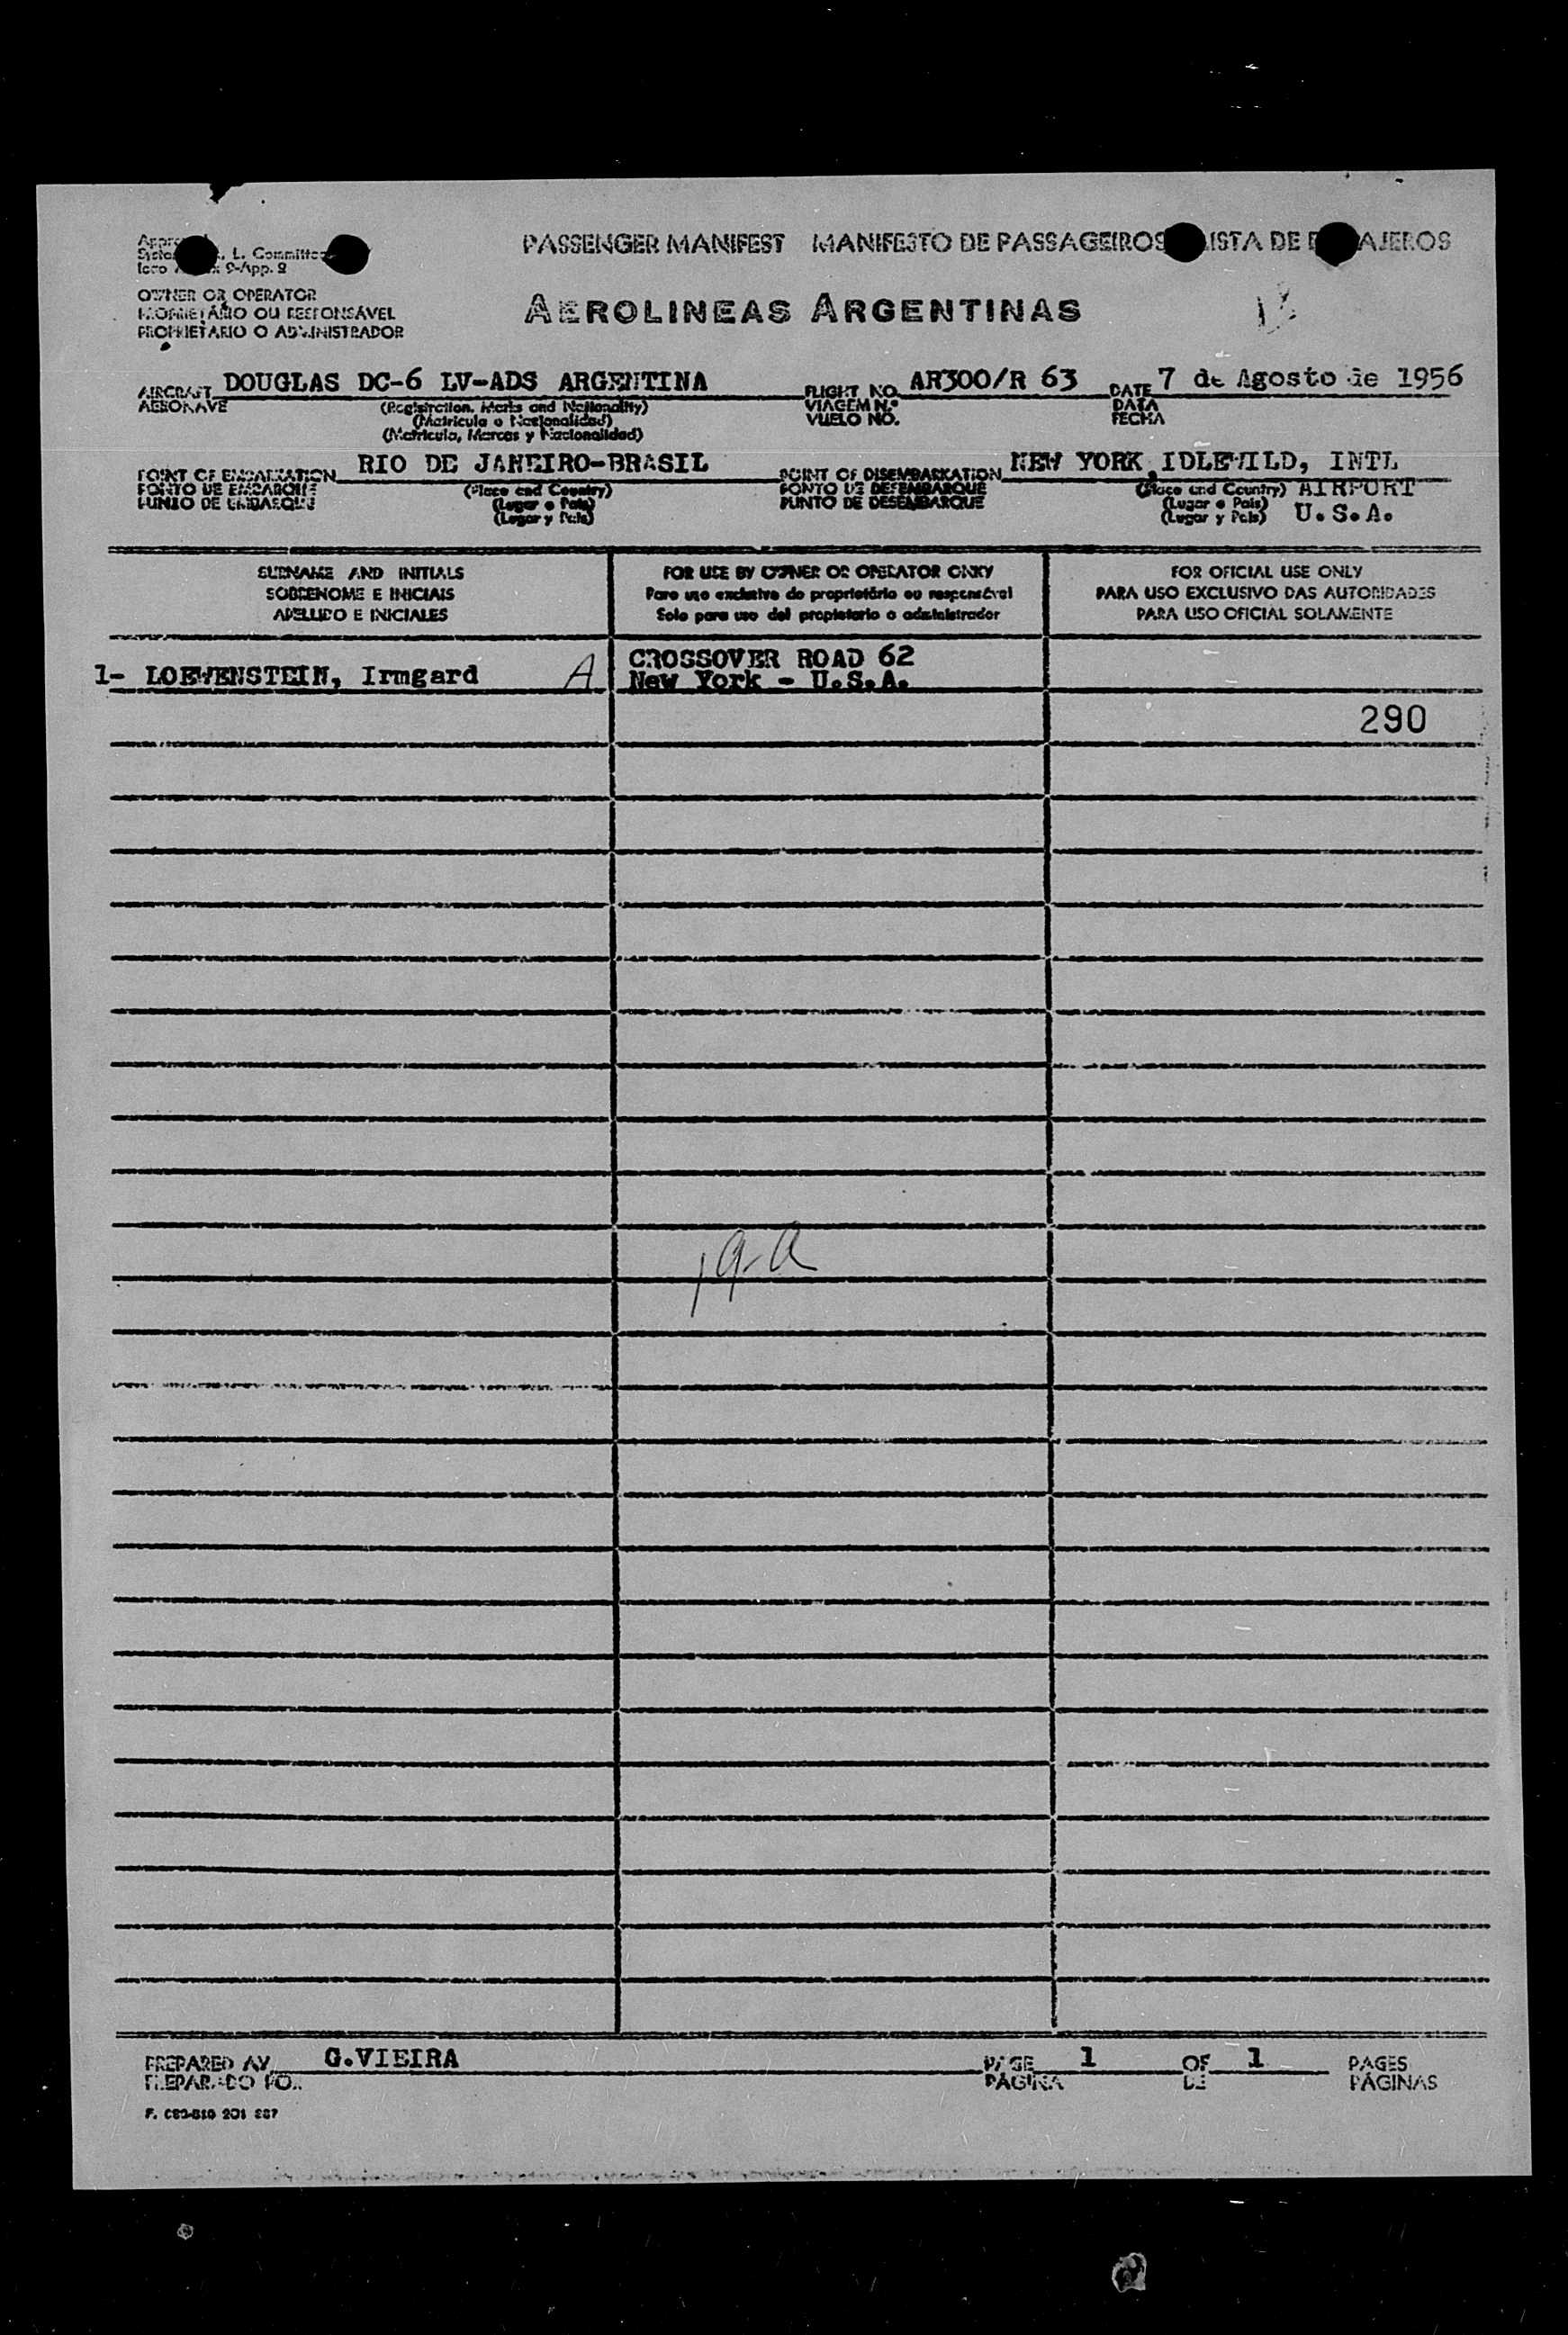 PASSENGER MANIFEST MANIFESTO DE PASSAGEIROS LISTA DE PASAJEROS
L. Committee
9-App. 2
OWNER OR OPERATOR
PROPRIETÁRIO OU RESPONSÁVEL
PROPIETARIO O ADMINISTRADOR
AEROLINEAS ARGENTINAS
AIRCRAFT DOUGLAS DC-6 LV-ADS ARGENTINA FLIGHT NO. AR300/R 63 DATE 7 de Agosto de 1956
AERONAVE (Registration, Marks and Nationality) VIAGEM N.º DATA
(Matricula o Nacionalidad) VUELO NO. FECHA
(Matricula, Marcas y Nacionalidad)
POINT OF EMBARKATION RIO DE JANEIRO-BRASIL POINT OF DISEMBARKATION NEW YORK, IDLEWILD, INTL
PONTO DE EMBARQUE (Place and Country) PONTO DE DESEMBARQUE (Place and Country) AIRPORT
PUNTO DE EMBARQUE (Lugar e Pais) PUNTO DE DESEMBARQUE (Lugar e Pais) U.S.A.
(Lugar y Pais) (Lugar y Pais)
SURNAME AND INITIALS FOR USE BY OWNER OR OPERATOR ONKY FOR OFICIAL USE ONLY
SOBRENOME E INICIAIS Para uso exclusivo do proprietário ou responsável PARA USO EXCLUSIVO DAS AUTORIDADES
APELLIDO E INICIALES Solo para uso del propietario o administrador PARA USO OFICIAL SOLAMENTE
CROSSOVER ROAD 62
1- LOEWENSTEIN, Irmgard A New York - U.S.A.
290
19-a
PREPARED AY G.VIEIRA PAGE 1 OF 1 PAGES
PREPARADO PO.. PÁGINA DE PÁGINAS